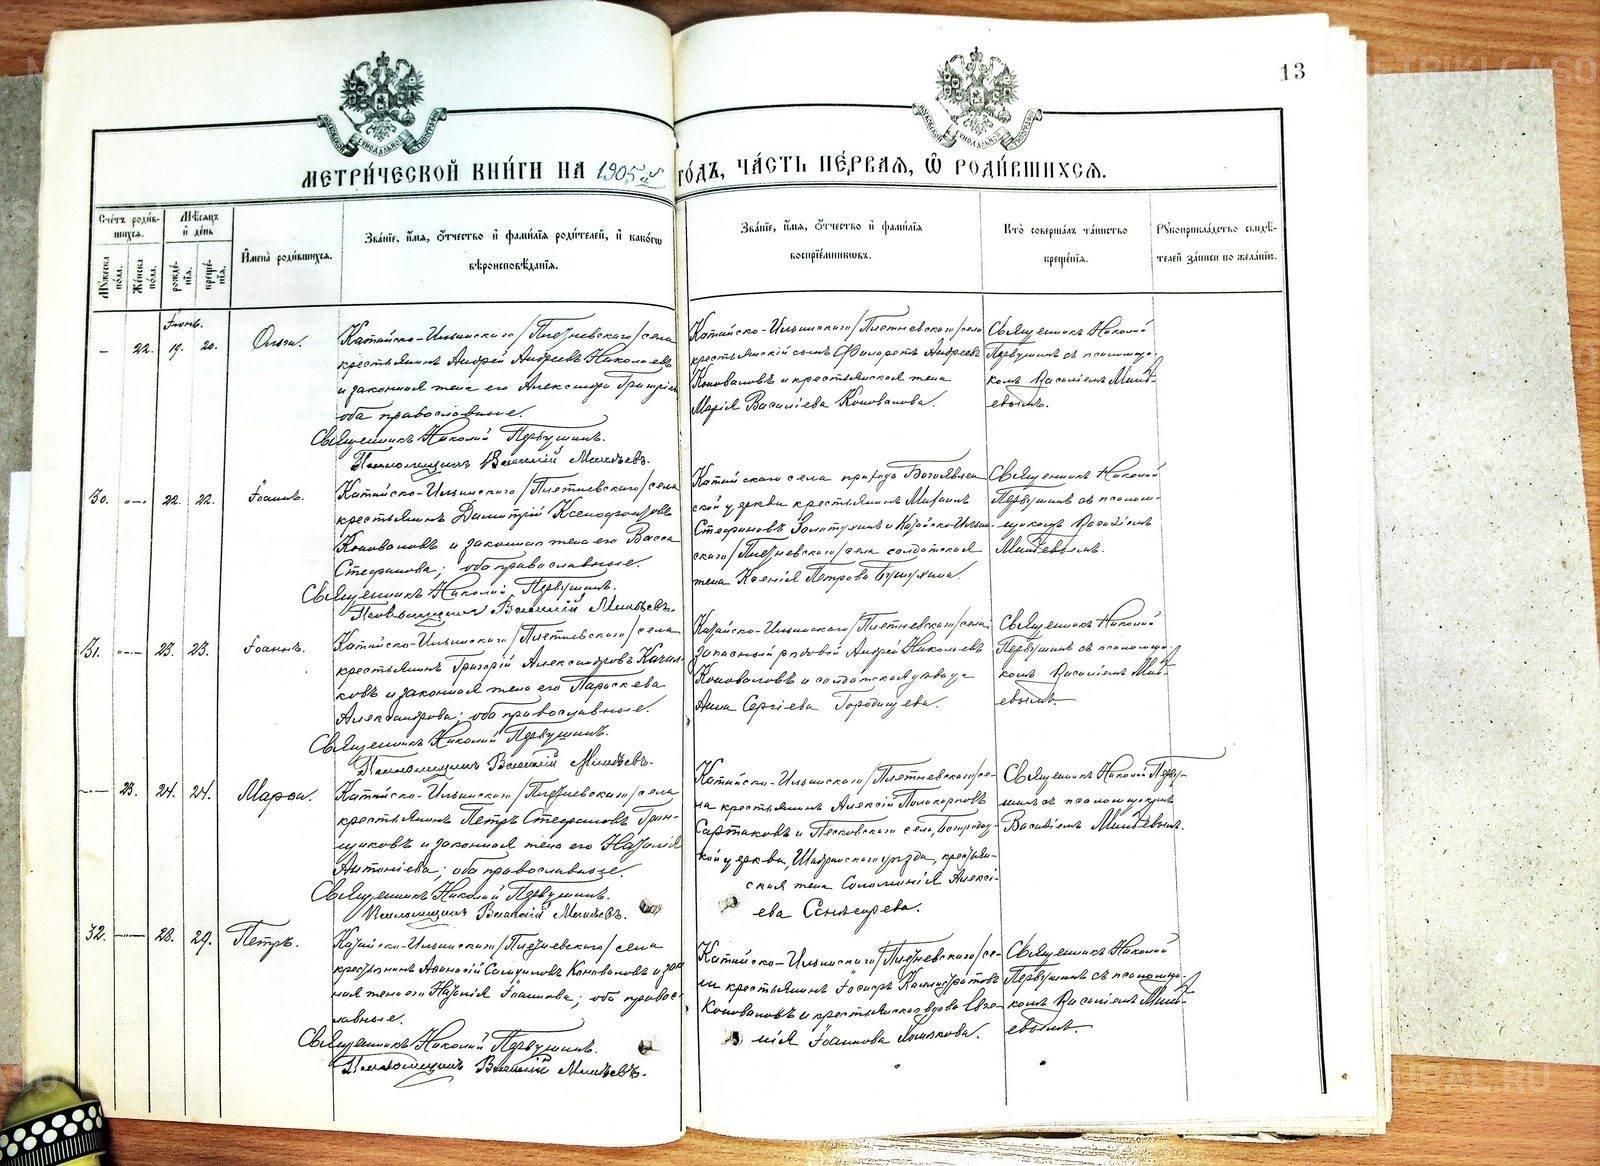 13
МЕТРИ́ЧЕСКОЙ КНИ́ГИ НА 1905ый го́дъ, ча́сть пе́рваѧ, ѽ роди́вшихсѧ.
Сче́тъ роди́в-
шихсѧ.
Мѣ́сѧцъ
и҆ де́нь
Мꙋ́жеска по́ла.
Же́нска по́ла.
рожде́-
нїѧ.
креще́-
нїѧ.
И҆мена̀ роди́вшихсѧ.
Зва́нїе, и҆́мѧ, ѻ҆́тчество и҆ фами́лїѧ роди́телей, и҆ како́гѡ
вѣроисповѣ́данїѧ.
Зва́нїе, и҆́мѧ, ѻ҆́тчество и҆ фами́лїѧ
воспрїе́мникѡвъ.
Кто̀ соверша́лъ та́инство
креще́нїѧ.
Рꙋкоприкла́дство свидѣ́-
телей за́писи по жела́нїю.
Іюнь.
22. 19. 20. Ольга.
Катайско-Ильинского/Плетневского/села
крестьянинъ Андрей Андреевъ Коноваловъ
и законная жена его Александра
оба православные.
Священникъ Николай Первушинъ.
Псаломщикъ Василій
Катайско-Ильинского/Плетневского/села
крестьянскій сынъ Филаретъ Андреевъ
Коноваловъ и крестьянская жена
Марія Васильева Коновалова.
Священникъ Николай
Первушинъ съ псаломщи-
комъ Василіемъ
30. 22. 22. Іоаннъ.
Катайско-Ильинского/Плетневского/села
крестьянинъ Димитрій Ксенофонтовъ
Коноваловъ и законная жена его Васса
Стефанова; оба православные.
Священникъ Николай Первушинъ.
Псаломщикъ Василій
Катайского села прихода Богоявлен-
ской церкви крестьянинъ
Стефановъ и Катайско-Ильин-
ского/Плетневского/села солдатская
жена Ксенія Петрова
Священникъ Николай
Первушинъ съ псалом-
щикомъ Василіемъ
31. 23. 23. Іоаннъ.
Катайско-Ильинского/Плетневского/села
крестьянинъ Григорій Александровъ
и законная жена его Параскева
Александрова; оба православные.
Священникъ Николай Первушинъ.
Псаломщикъ Василій
Катайско-Ильинского/Плетневского/села
запасный рядовой Андрей
Коноваловъ и солдатская
Анна Сергіева Городищева.
Священникъ Николай
Первушинъ съ псаломщи-
комъ Василіемъ
23. 24. 24. Марѳа.
Катайско-Ильинского/Плетневского/села
крестьянинъ Петръ Стефановъ
и законная жена его Наталія
Антоніева; оба православные.
Священникъ Николай Первушинъ.
Псаломщикъ Василій
Катайско-Ильинского/Плетневского/се-
ла крестьянинъ Алексій Поликарповъ
Сартаковъ и Песковского села,
церкви, Шадринского уѣзда, крестьян-
ская жена Соломонія Алексі-
ева
Священникъ Николай Перву-
шинъ съ псаломщикомъ
Василіемъ
32. 28. 29. Петръ.
Катайско-Ильинского/Плетневского/села
крестьянинъ Коноваловъ и закон-
ная жена его Наталія Іоаннова; оба право-
славные.
Священникъ Николай Первушинъ.
Псаломщикъ Василій
Катайско-Ильинского/Плетневского/се-
ла крестьянинъ Іосифъ Каллистратовъ
Коноваловъ и крестьянская вдова Евге-
нія Іоаннова
Священникъ Николай
Первушинъ съ псаломщи-
комъ Василіемъ